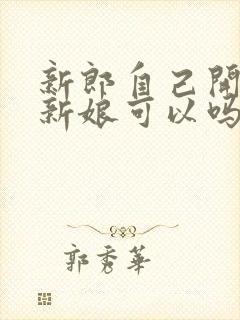 新郎自己開
新娘可以吗
郭秀華